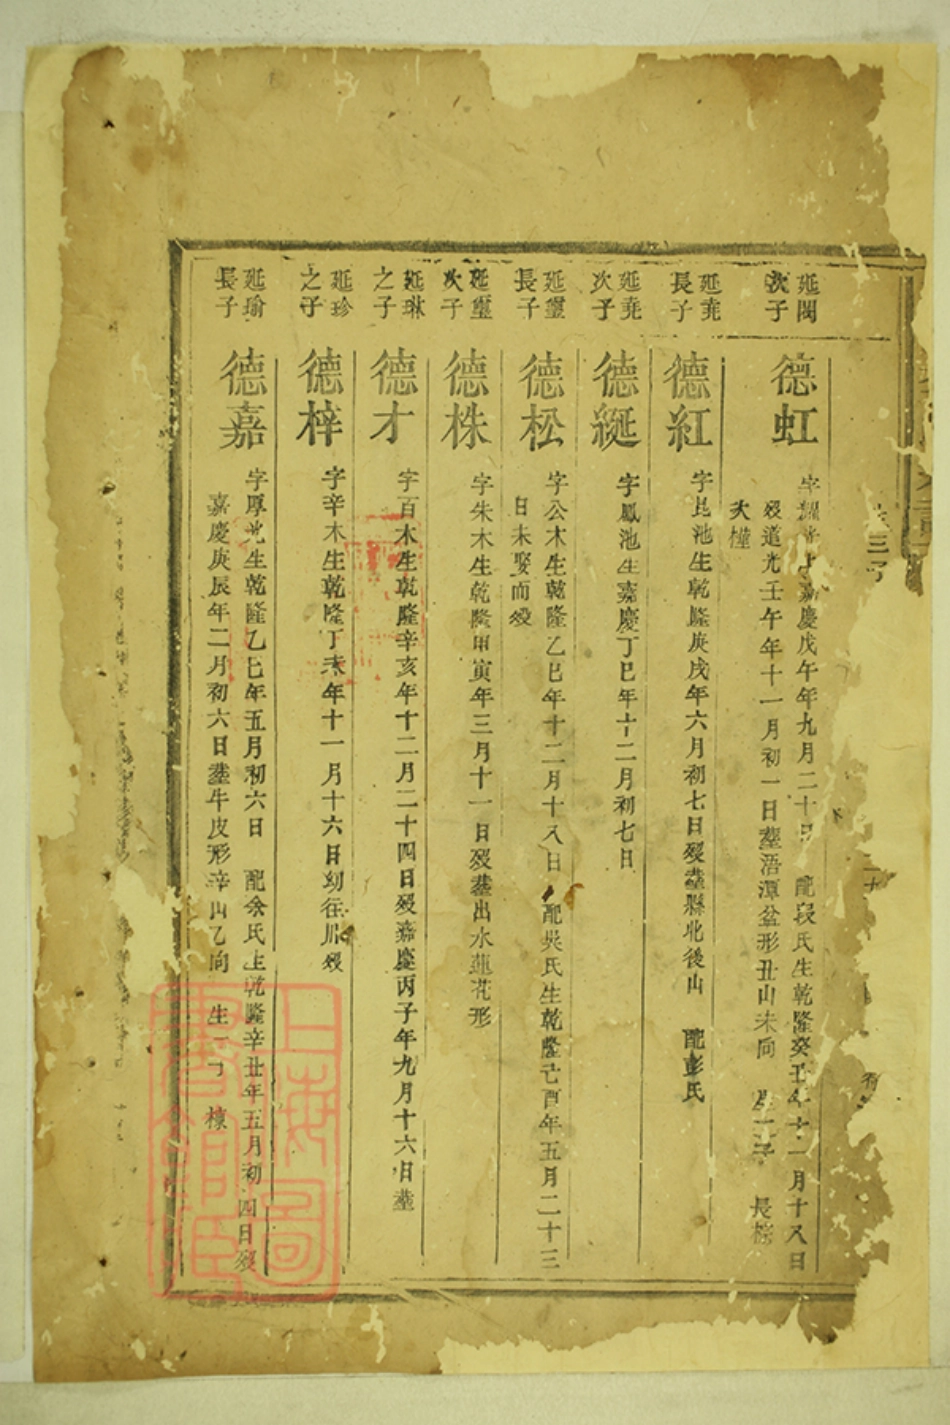 延閩
次子
德虹
嘉慶戊午年九月二十日 配段氏生乾隆癸丑年十一月十八日
歿道光壬午年十一月初一日塟浯潭盆形丑山未向 生二子 長
次樟
延堯
長子
德紅
字昆池生乾隆庚戌年六月初七日歿塟縣北後山 配彭氏
延堯
次子
德綖
字鳳池生嘉慶丁巳年十二月初七日
延璽
長子
德松
字公木生乾隆乙巳年十二月十八日 配吳氏生乾隆己酉年五月二十三
日未娶而歿
延璽
次子
德株
字朱木生乾隆甲寅年三月十一日歿塟出水蓮花形
延琳
之子
德才
字百木生乾隆辛亥年十二月二十四日歿嘉慶丙子年九月十六日塟
延珍
之子
德梓
字辛木生乾隆丁未年十一月十六日幼往川歿
延瑜
長子
德嘉
字厚光生乾隆乙巳年五月初六日 配余氏生乾隆辛丑年五月初四日歿
嘉慶庚辰年二月初六日塟牛皮形辛山乙向 生一子 樑
上海圖
書館藏